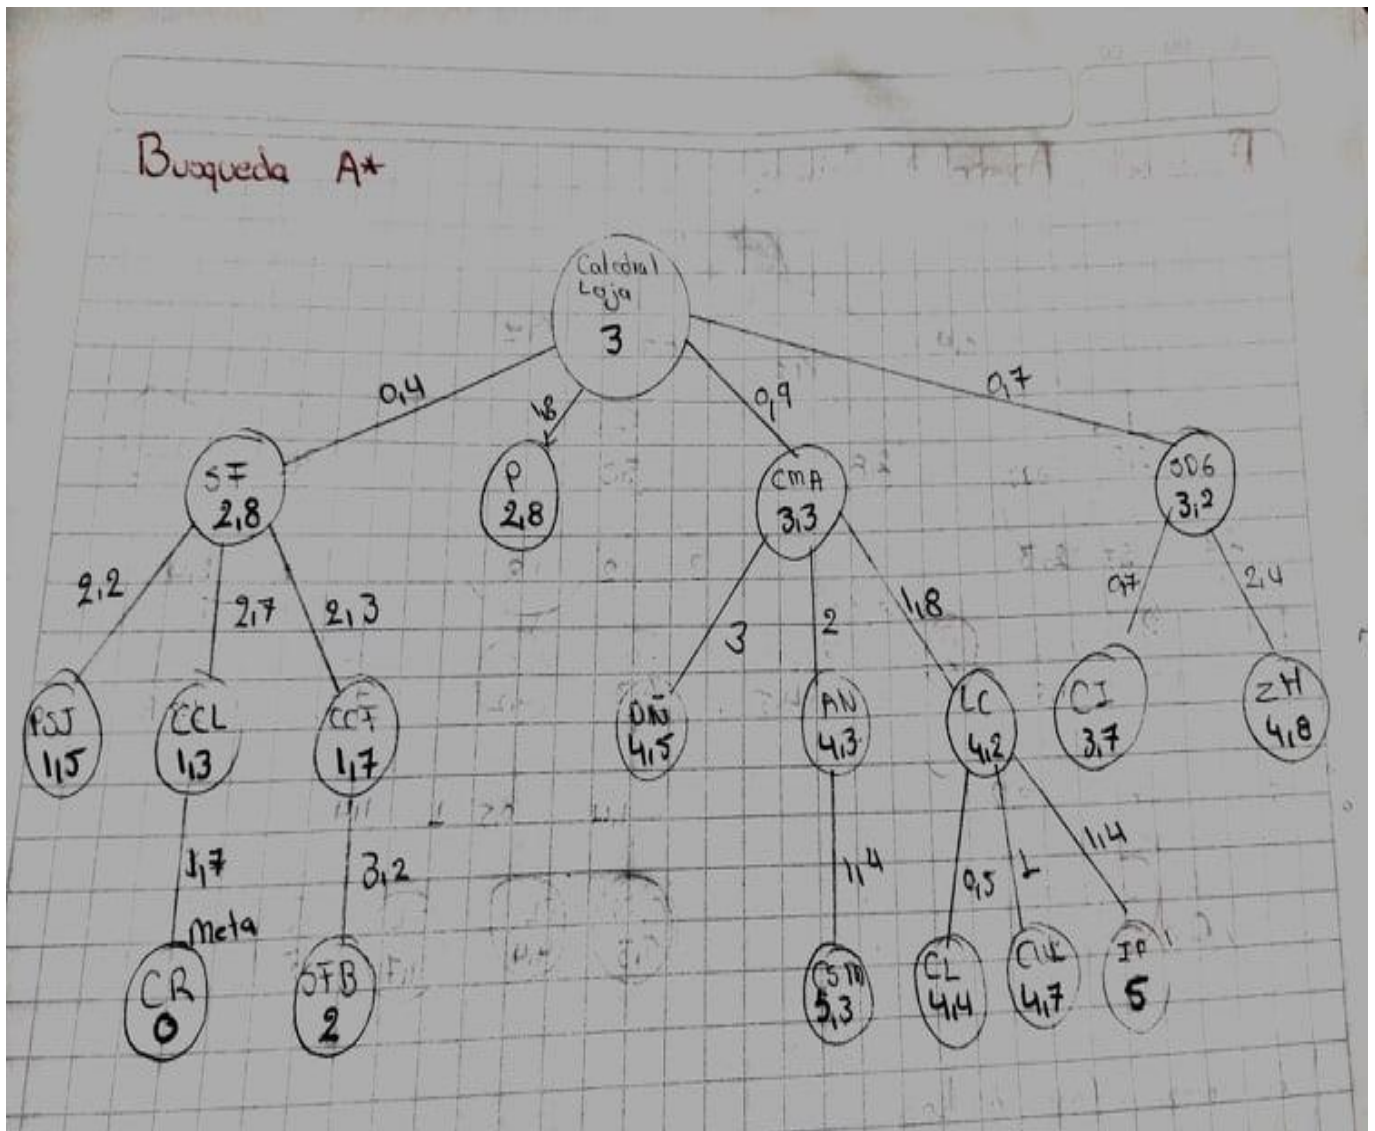 Busqueda A*
Catedral
Loja
3
0,4
1,8
0,9
0,7
SF
2,8
P
2,8
CMA
3,3
SDG
3,2
2,2
2,7
2,3
3
2
1,8
0,7
2,4
PSJ
1,5
CCL
1,3
CCF
1,7
DÑ
4,5
AN
4,3
LC
4,2
CI
3,7
ZH
4,8
1,7
3,2
1,4
0,5
1
1,4
Meta
CR
0
SFB
2
CSM
5,3
CL
4,4
4,7
5